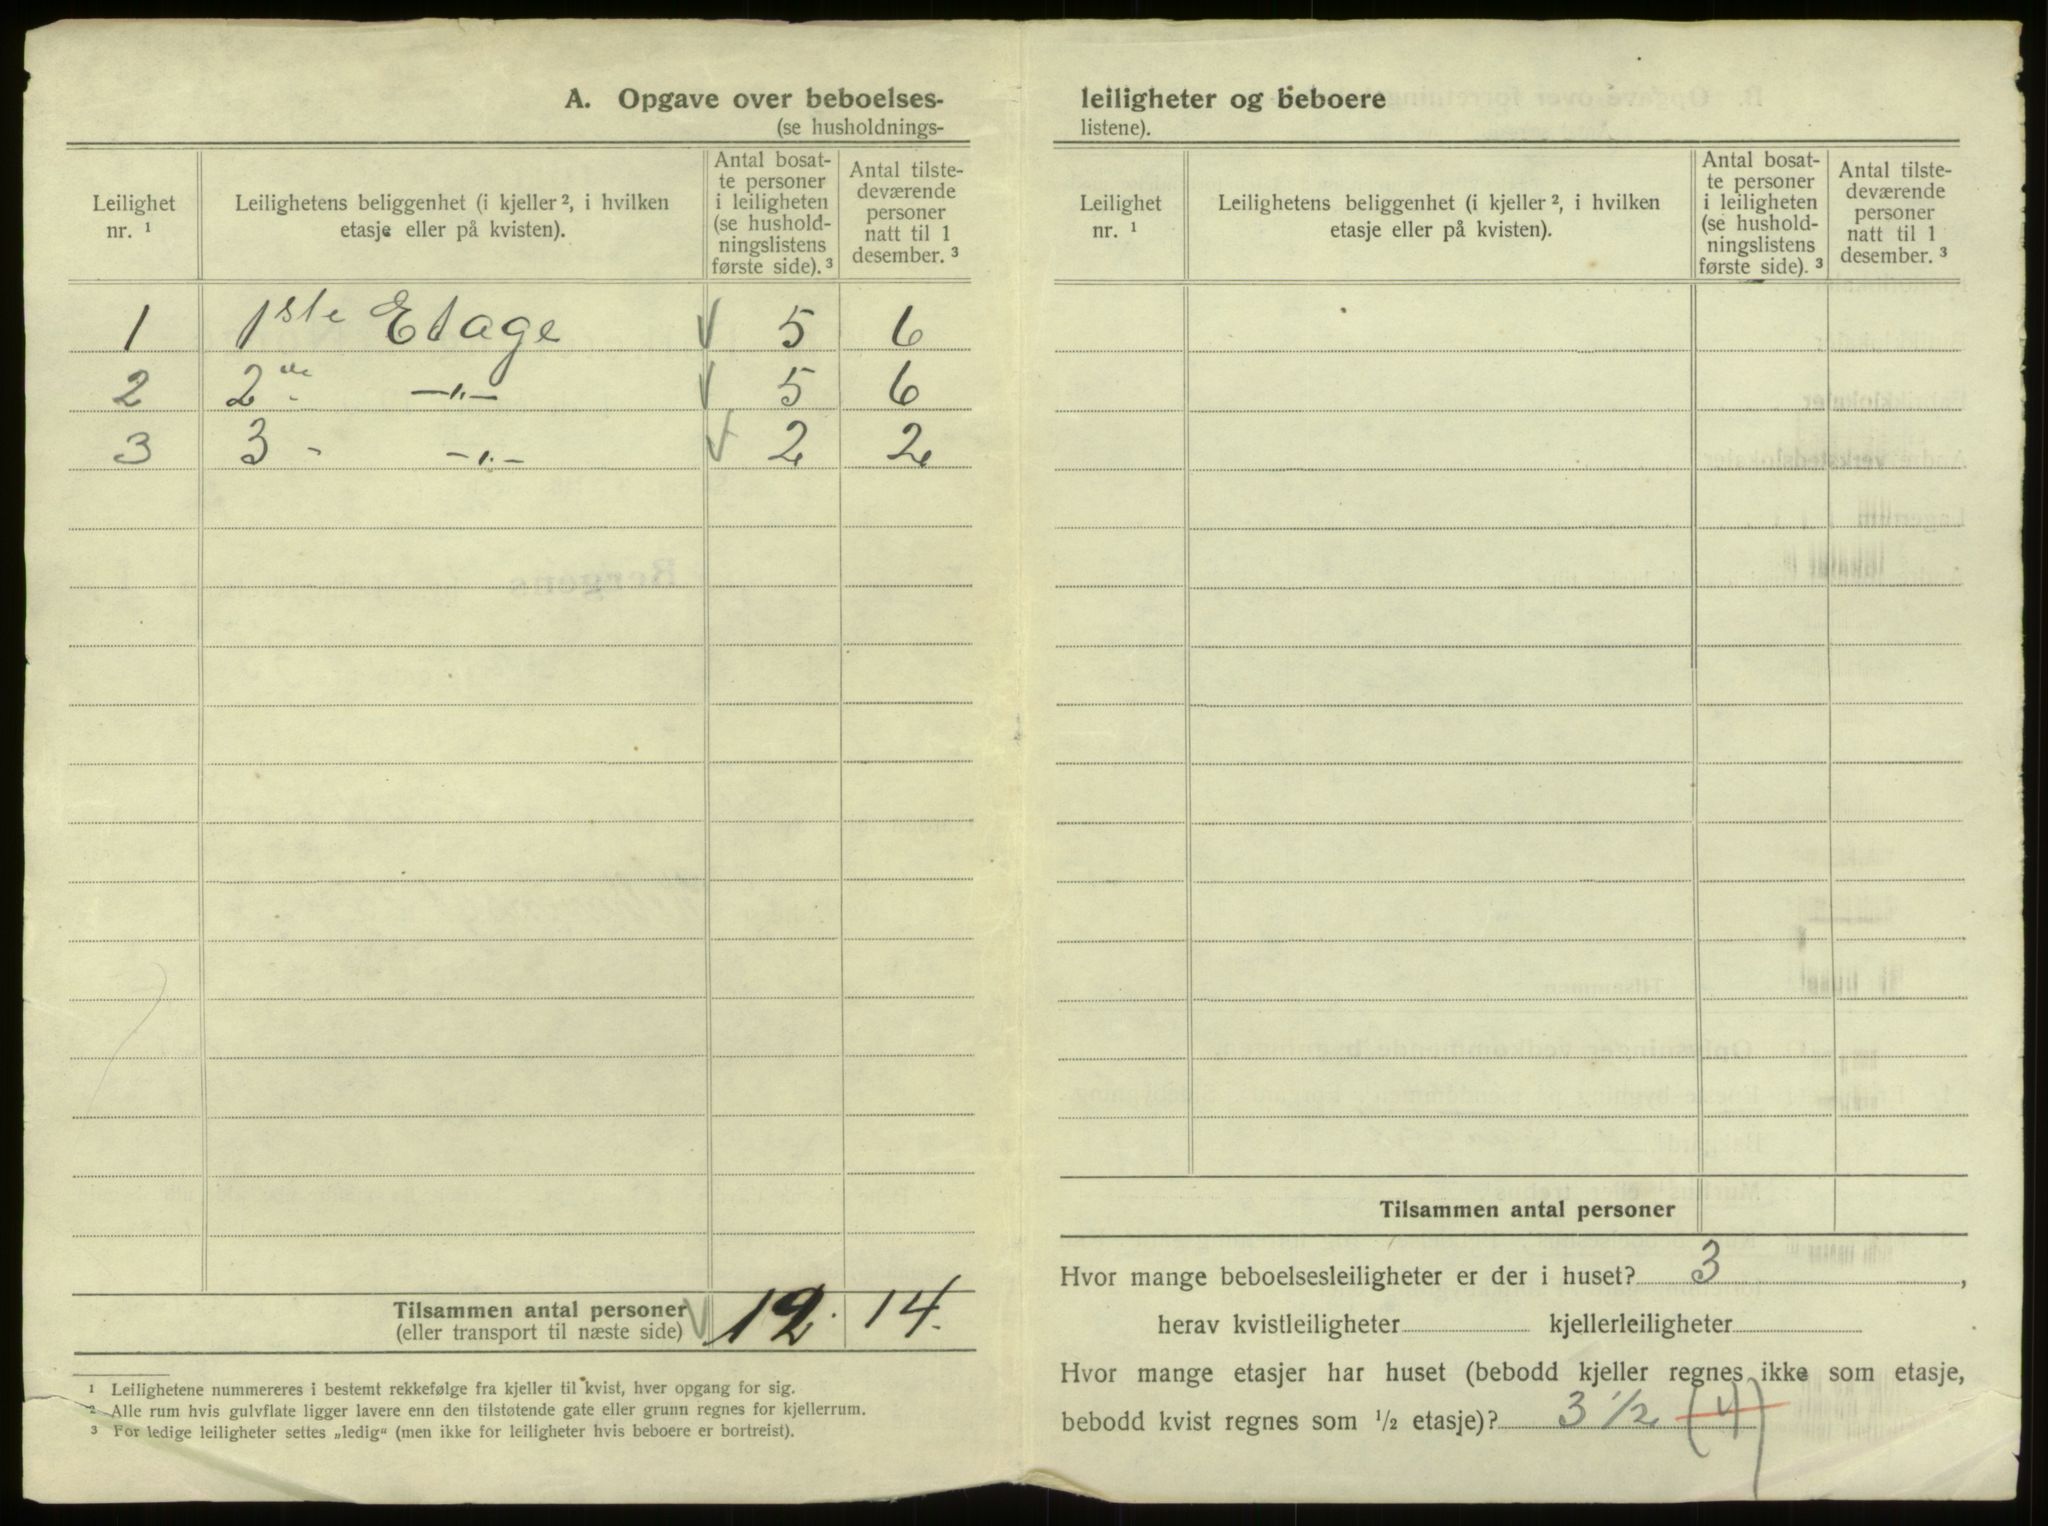 A. Opgave over beboelses-
(se husholdnings-
Leilighet
nr. ¹
Leilighetens beliggenhet (i kjeller ², i hvilken
etasje eller på kvisten).
Antal bosat-
te personer
i leiligheten
(se hushold-
ningslistens
første side). ³
Antal tilste-
deværende
personer
natt til 1
desember. ³
1 1ste Etage √ 5 6
2 2de -"- √ 5 6
3 3 - -"- √ 2 2
Tilsammen antal personer
(eller transport til næste side) √ 12. 14.
¹ Leilighetene nummereres i bestemt rekkefølge fra kjeller til kvist, hver opgang for sig.
² Alle rum hvis gulvflate ligger lavere enn den tilstøtende gate eller grunn regnes for kjellerrum.
³ For ledige leiligheter settes „ledig“ (men ikke for leiligheter hvis beboere er bortreist).
leiligheter og beboere
listene).
Leilighet
nr. ¹
Leilighetens beliggenhet (i kjeller ², i hvilken
etasje eller på kvisten).
Antal bosat-
te personer
i leiligheten
(se hushold-
ningslistens
første side). ³
Antal tilste-
deværende
personer
natt til 1
desember. ³
Tilsammen antal personer
Hvor mange beboelsesleiligheter er der i huset? 3,
herav kvistleiligheter kjellerleiligheter
Hvor mange etasjer har huset (bebodd kjeller regnes ikke som etasje,
bebodd kvist regnes som ½ etasje)? 3 ½ (4)